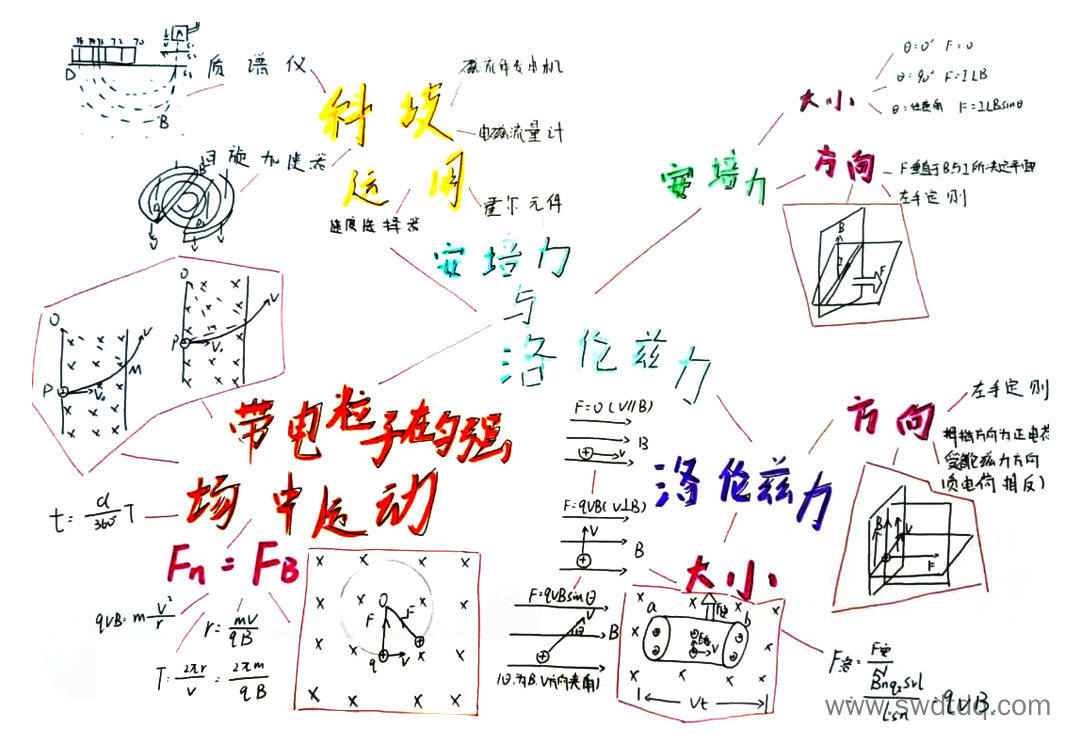 76 74 73 72 70
A
S1
S3
D
B
质谱仪
回旋加速器
科技
运用
磁流体发电机
电磁流量计
霍尔元件
速度选择器
安培力
与
洛伦兹力
安培力
大小
θ=0° F=0
θ=90° F=ILB
θ=任意角 F=ILBsinθ
方向
F垂直于B与I所决定平面
左手定则
B
I
F
O
V
P
V₀
O
V
M
P
V₀
带电粒子在匀强
场中运动
t=α/360° T
Fn=FB
qVB=m V²/r
r=mV/qB
T=2πr/V=2πm/qB
O
F
F
q
V
洛伦兹力
方向
左手定则
拇指方向为正电荷
受洛伦兹力方向
(负电荷相反)
B
V
F
大小
F=0 (V//B)
B
V
F=qVB( V⊥B)
V
B
F=qVBsinθ
V
θ
B
(θ为B.V方向夹角)
a
F安
b
F洛
V
Vt
F洛=F安/N
=BnqsVL/Lsn=qVB.
www.swdtdq.com